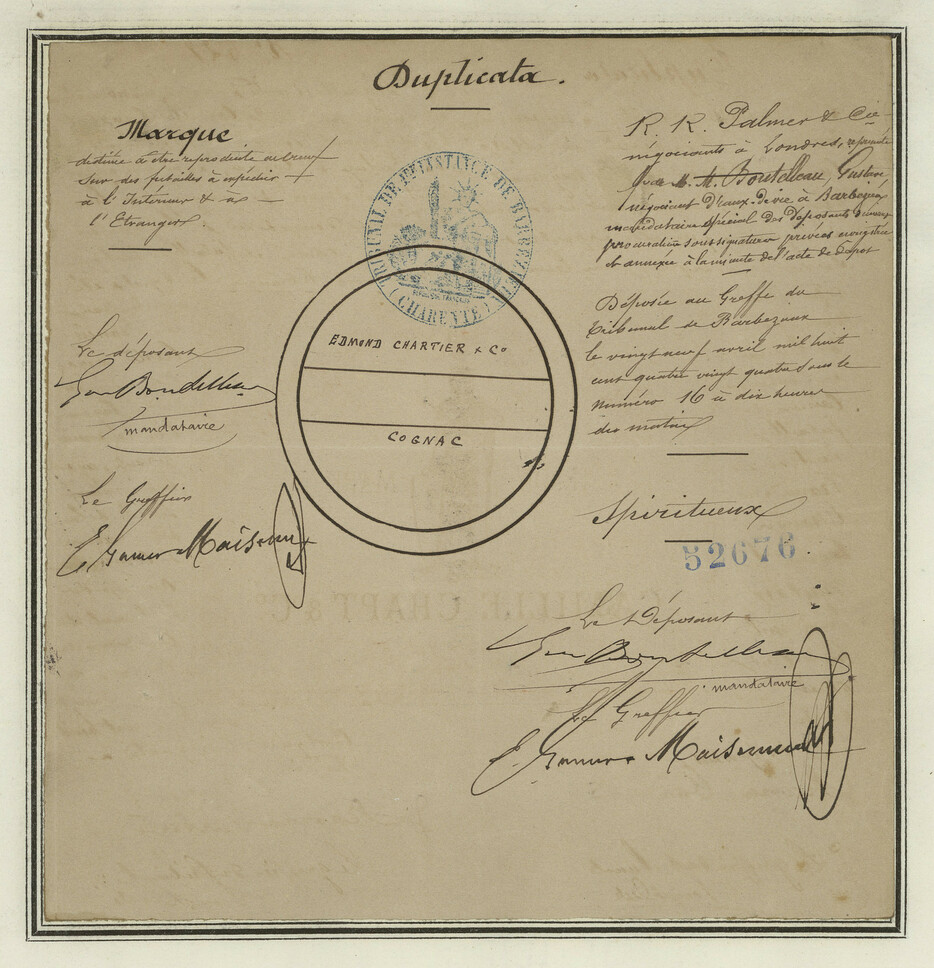 Duplicata.
Marque
destinée à être reproduite au feu
sur des futailles à expédier
à l'Intérieur & à
l'Etranger
R. R. Palmer & Cie
négociants à Londres, représenté
par M. Boutelleau, Gustave
négociant d'eaux-de-vie à Barbezieux
mandataire spécial des déposants suivant
procuration sous signatures privées enregistrée
et annexée à la minute de l'acte de dépôt
Déposée au Greffe du
Tribunal de Barbezieux
le vingt neuf avril mil huit
cent quatre vingt quatre sous le
numéro 16 à dix heures
du matin
TRIBUNAL DE 1ERE INSTANCE DE BARBEZIEUX
(CHARENTE)
EDMOND CHARTIER & Co
COGNAC
Le déposant
Gve Boutelleau
mandataire
Le Greffier
E. Maisonneuve
Spiritueux
52676
Le Déposant
Gve Boutelleau
mandataire
Le Greffier
E. Maisonneuve
CAMILLE CHAPT & Co